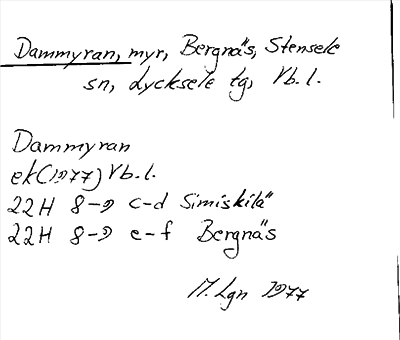 Dammyran, myr, Bergnäs, Stensele
sn, Lycksele tg, Vb. l.
Dammyran
ek(1977) Vb. l.
22H 8-9 c-d Simiskilä
22H 8-9 e-f Bergnäs
M. Lgn 1977